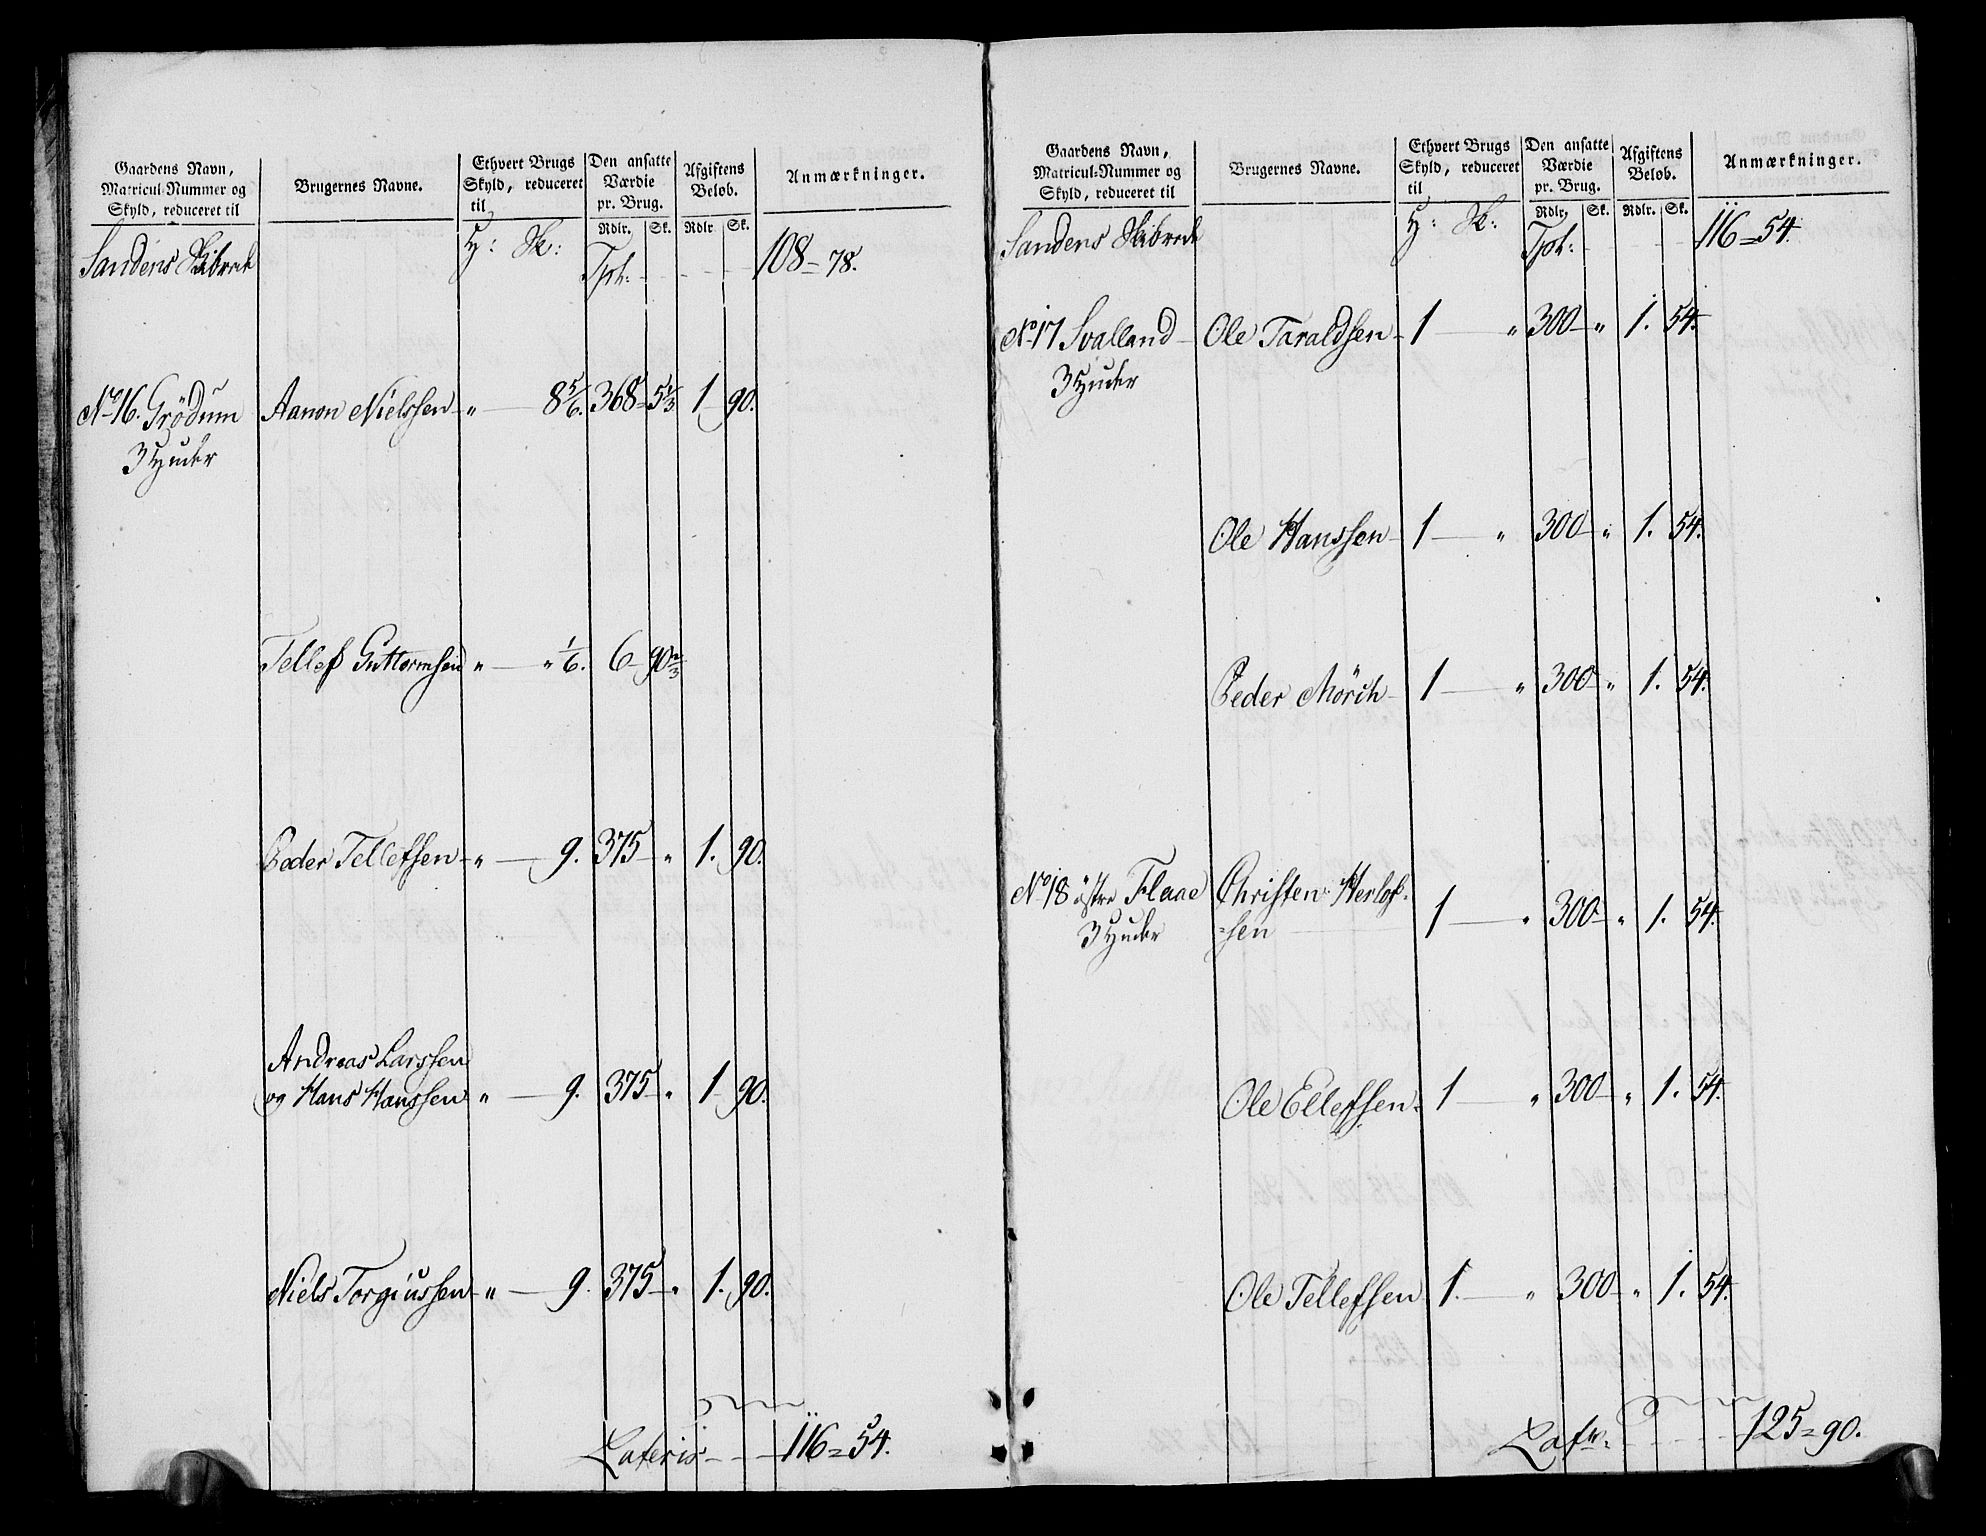 Gaardens Navn, Matricul-Nummer og Skyld, reduceret til | Brugernes Navne. | Ethvert Brugs Skyld, reduceret til | Den ansatte Værdie pr. Brug. | Afgiftens Beløb. | Anmærkninger.
Rdlr. Sk. Rdlr. Sk.
Sandens Skibrede H: Sk: Tpt: 108 = 78.
No 16. Grödum Aanon Nielssen " 8 5/6. 368 5 1/3 1 90.
3 Huder
Tellef Guttormsen " " 1/6. 6 90 2/3
Peder Tellefsen " 9. 375 " 1. 90.
Andreas Larssen
og Hans Hanssen " 9. 375 " 1 90.
Niels Torgiussen " 9. 375 " 1. 90.
Lateris 116 = 54.
Gaardens Navn, Matricul-Nummer og Skyld, reduceret til | Brugernes Navne. | Ethvert Brugs Skyld, reduceret til | Den ansatte Værdie pr. Brug. | Afgiftens Beløb. | Anmærkninger.
Rdlr. Sk. Rdlr. Sk.
Sandens Skibrede H: Sk: Tpt: 116 = 54.
No 17 Svalland Ole Taraldsen 1 " 300 " 1. 54.
3 Huder
Ole Hanssen 1 " 300 " 1. 54.
Peder Mörch 1 " 300 " 1. 54.
No 18 östre Flaae Christen Herlof-
3 Huder =sen 1 " 300 " 1. 54.
Ole Ellefsen. 1 " 300 " 1. 54.
Ole Tellefsen 1. " 300 " 1. 54.
Latr: 125 = 90.